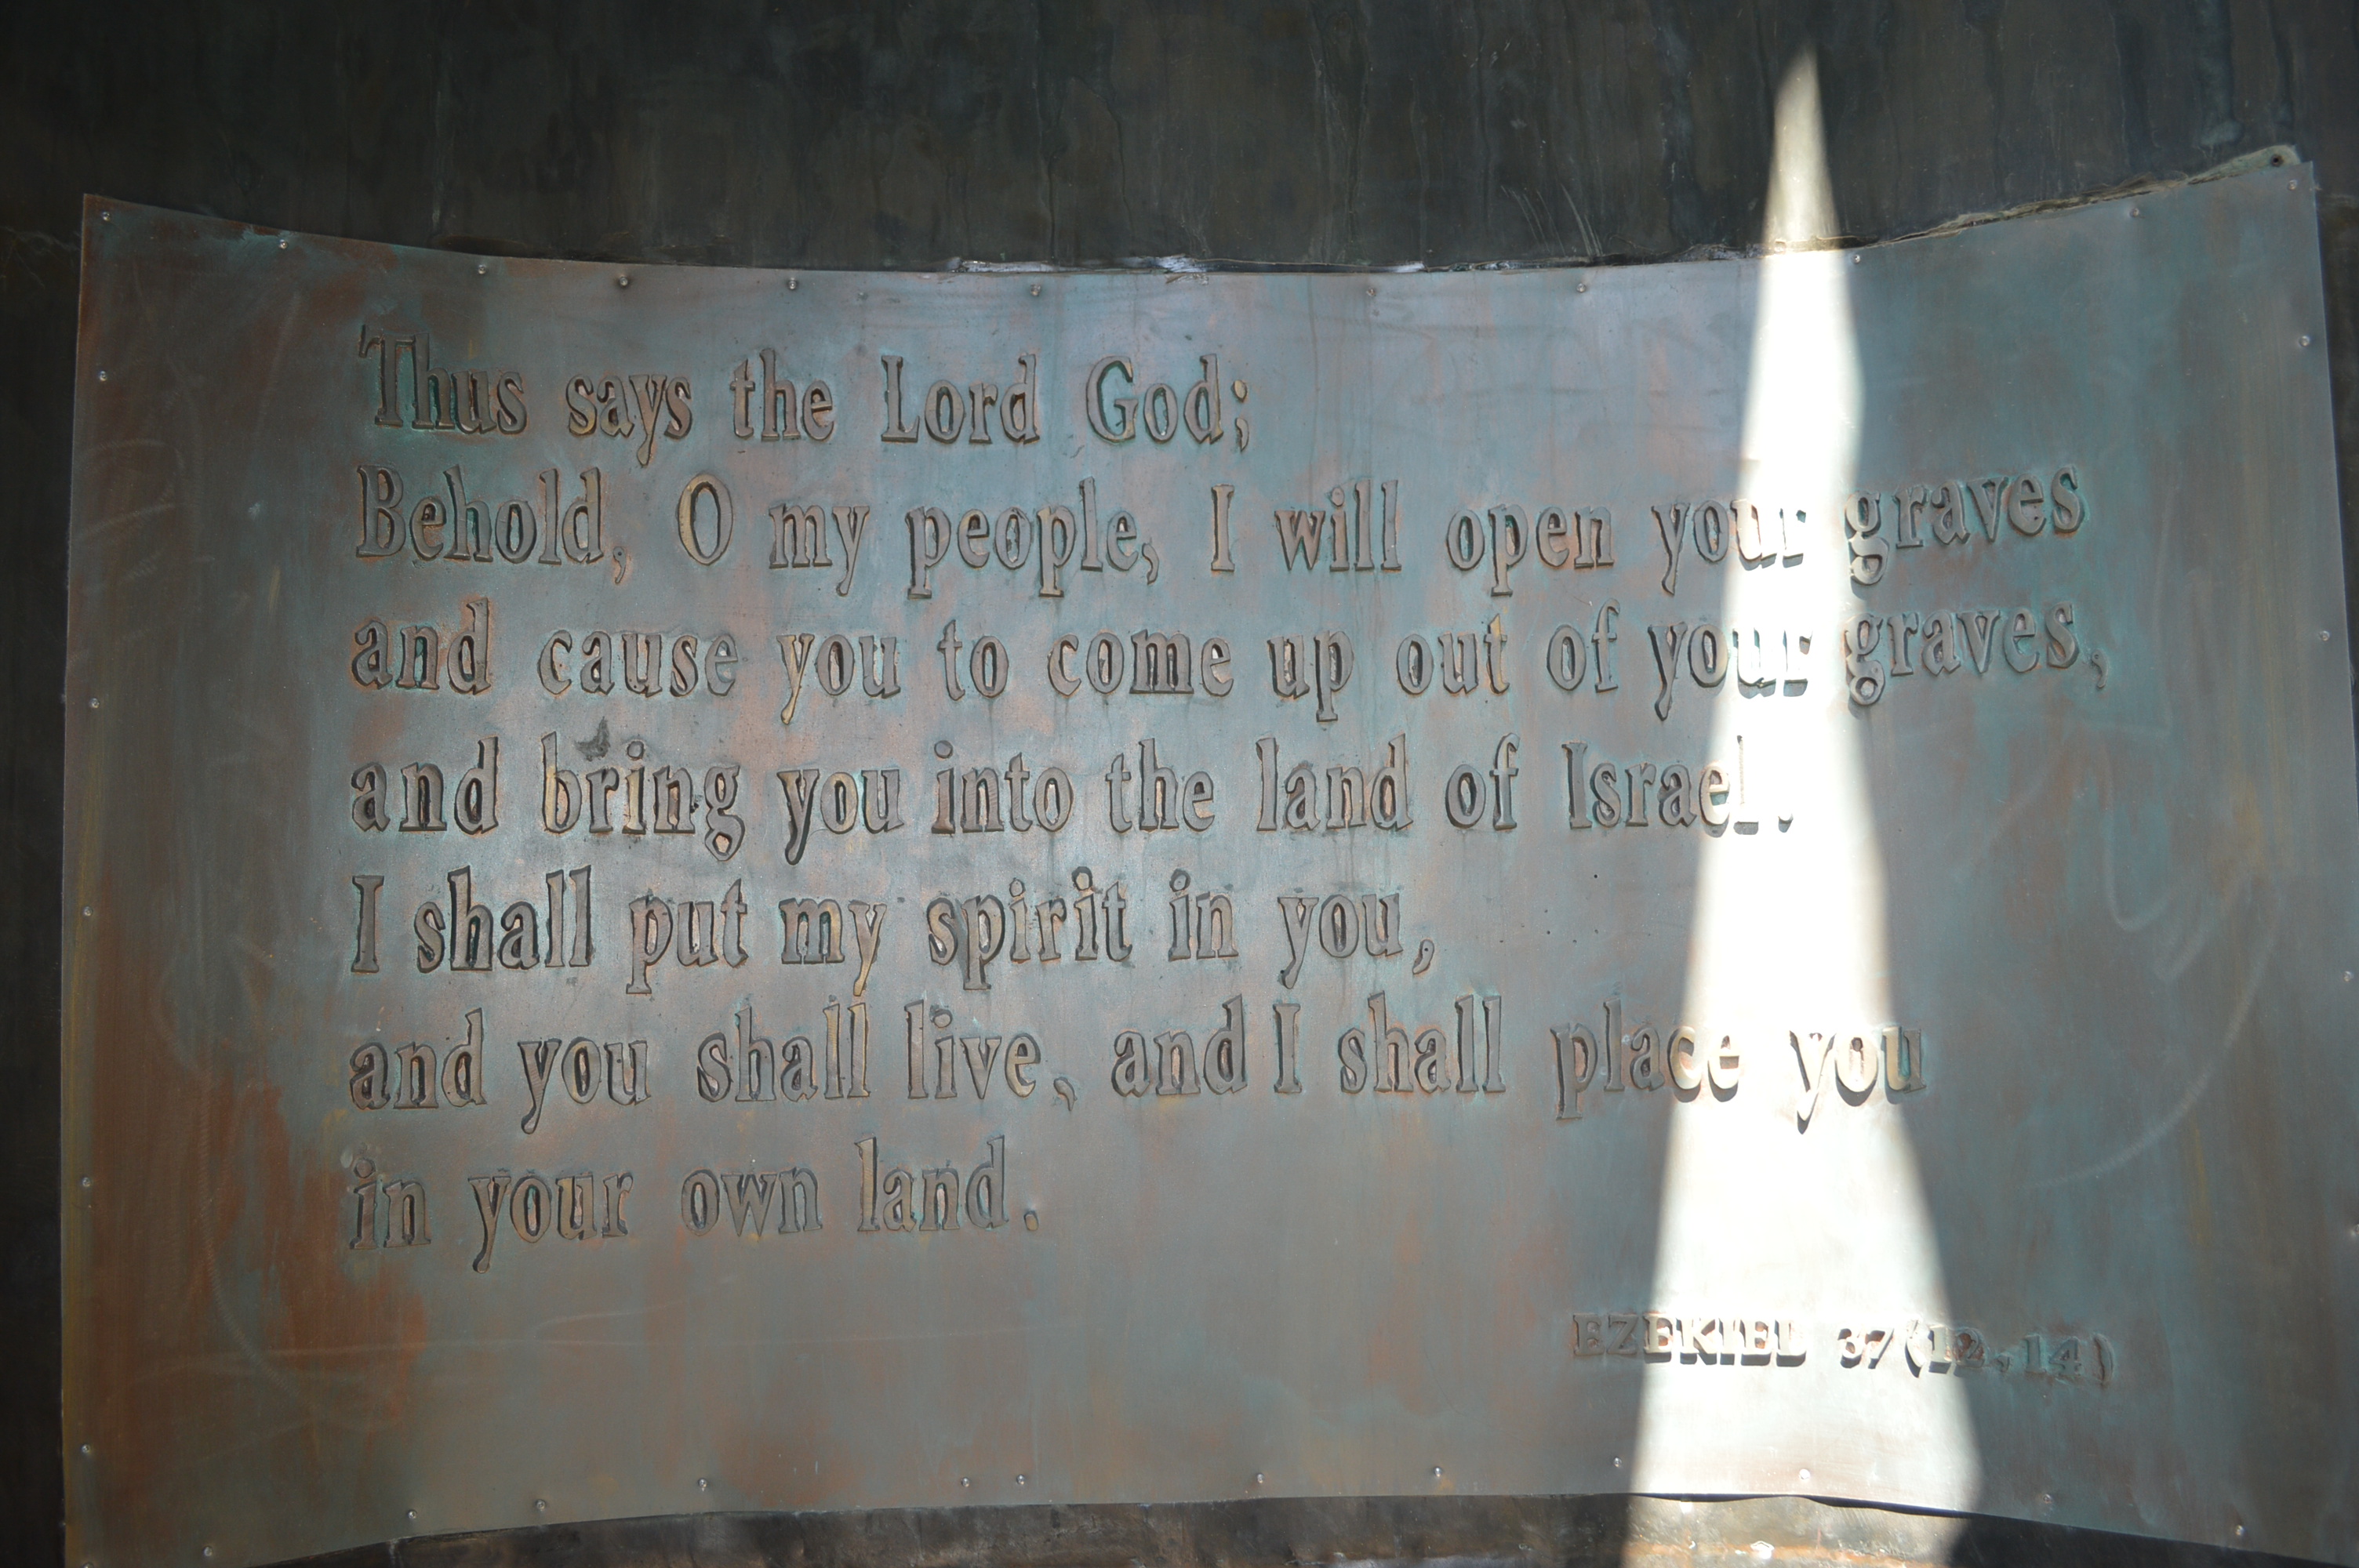 Thus says the Lord God;
Behold, O my people, I will open your graves
and cause you to come up out of your graves,
and bring you into the land of Israel.
I shall put my spirit in you,
and you shall live, and I shall place you
in your own land.
EZEKIEL 37(12,14)